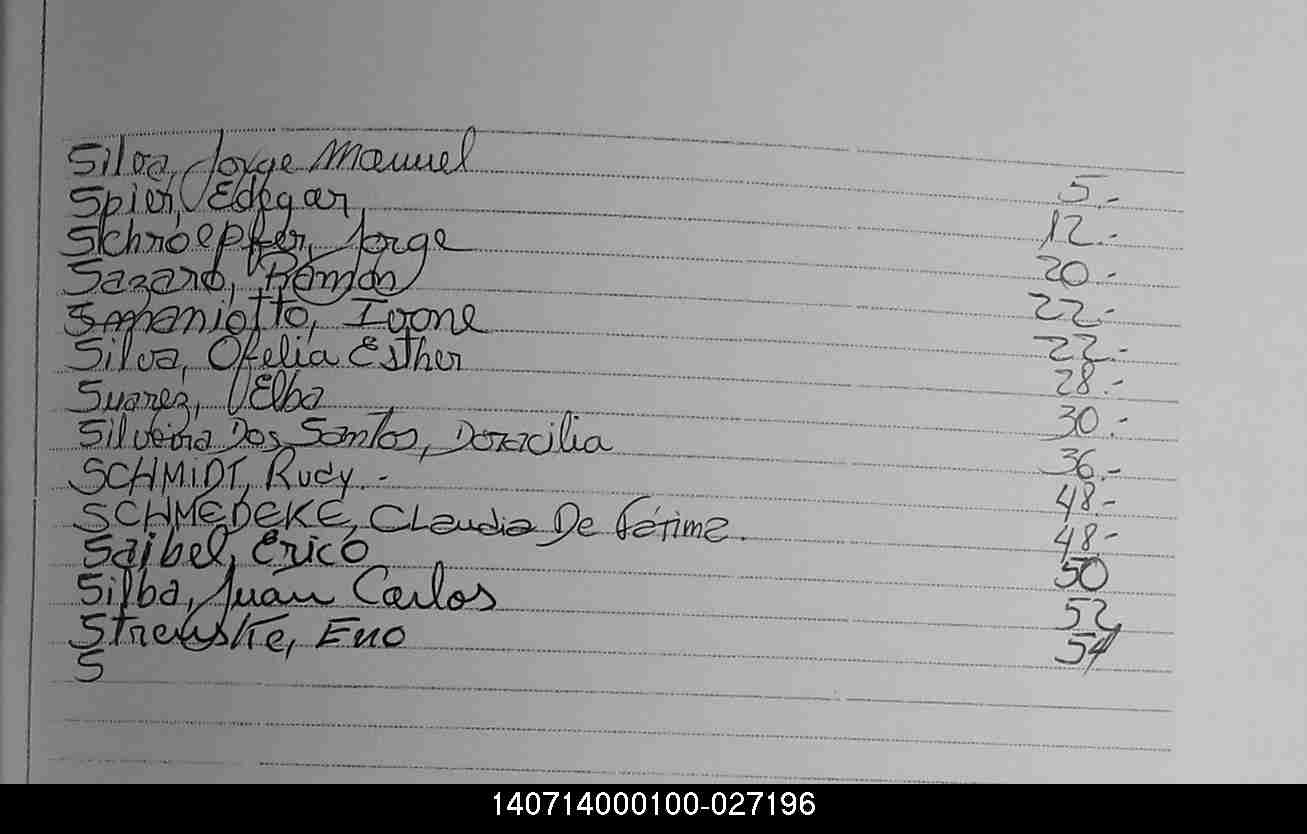 Silva, Jorge Manuel 5.-
Spier, Edegar 12.-
Schroepfer, Jorge 20.-
Sazaro, Román 22.-
Smaniotto, Ivone 22.-
Silva, Ofelia Esther 28.-
Suarez, Elba 30.-
Silveira Dos Santos, Doracilia 36.-
SCHMIDT, Rudy.- 48.-
SCHMEDEKE, Claudia De Fátima. 48.-
Saibel, Erico 50
Silba, Juan Carlos 52
Streuske, Eno 54
S
140714000100-027196